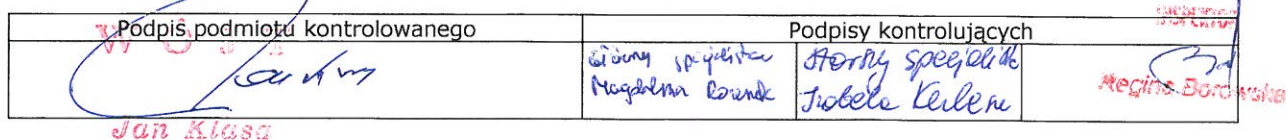 Podpis podmiotu kontrolowanego
Podpisy kontrolujących
WÓJT
główny specjalista
Magdalena
starszy specjalista
Izabela
Regina Borowska
Jan Klasa